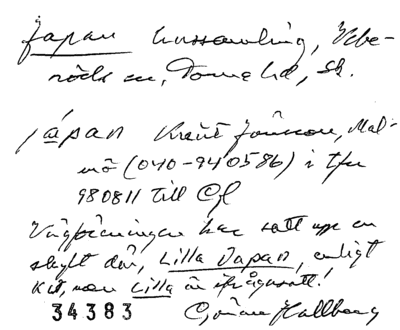 Japan hussamling, Vebe-
röds sn, Torna hd, Sk.
Japan Kräut Jönsson, Mal-
mö (040-940586) i tfn
980811 till CJ
Vägföreningen har satt upp en
skylt där, Lilla Japan, enligt
KJ, men Lilla är ifrågasatt!
34383 Göran Hallberg